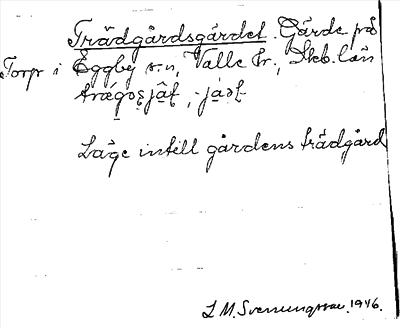 Trädgårdsgärdet. Gärde på
Torp i Eggby sn, Valle hr., Skb. län
Läge intill gårdens trädgård
L M. Svenungsson. 1946.